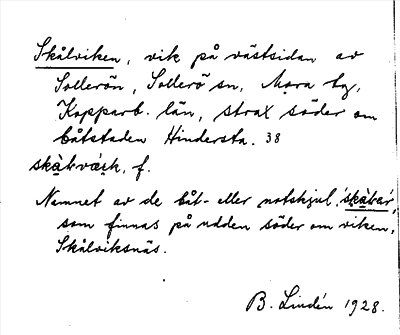 Skålviken, vik på västsidan av
Sollerön, Sollerö sn, Mora tg,
Kopparb. län, strax söder om
båtstaden Hindersta. 38
skàkvæ̀ιk, f.
Namnet av de båt- eller notskjul, 'skàkar',
som finnas på udden söder om viken,
Skålviksnäs.
B. Lindén 1928.